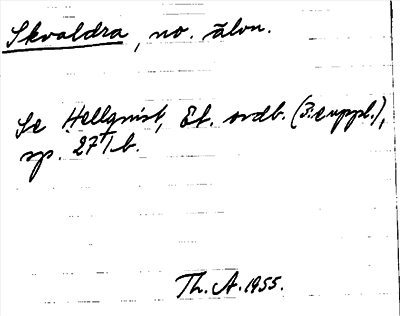 Skvaldra, no. älvn.
Se Hellqvist, Et. ordb. (3:e uppl.),
sp. 271 b.
Th. A. 1955.